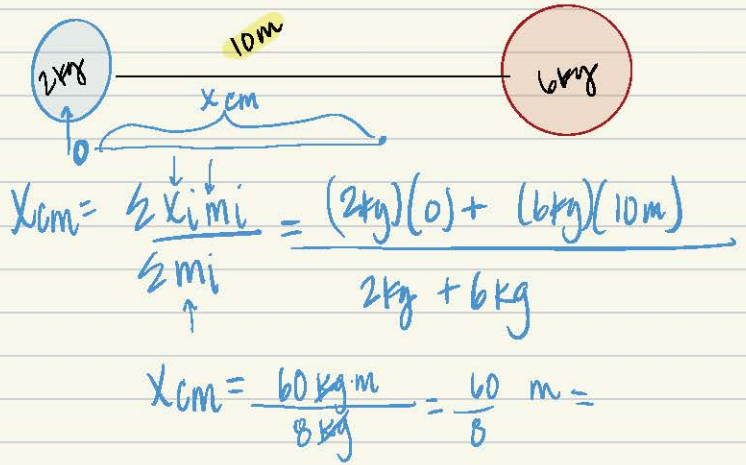 10m
2kg
6kg
x cm
0
Xcm = Σ xi mi / Σ mi = (2kg)(0) + (6kg)(10m) / 2kg + 6kg
Xcm = 60 kg·m / 8 kg = 60 / 8 m =